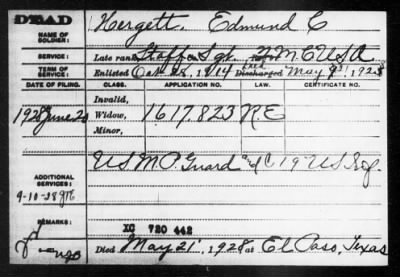 DEAD
NAME OF SOLDIER: Hergett, Edmund C
SERVICE: Late rank Staff Sgt. Q M C U S A
TERM OF SERVICE: Enlisted 1914 Discharged May 1928
DATE OF FILING. CLASS. APPLICATION NO. LAW. CERTIFICATE NO.
Invalid,
1928 June 2 Widow, 1617,823 R E
Minor,
U S M P. Guard and C 19 U S Inf.
ADDITIONAL SERVICES:
9-10-28
REMARKS: XC 720 442
Died May 21, 1928 at El Paso, Texas